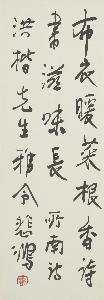 布衣暖菜根香詩
書滋味長 所南語
洪楷先生雅令 悲鴻